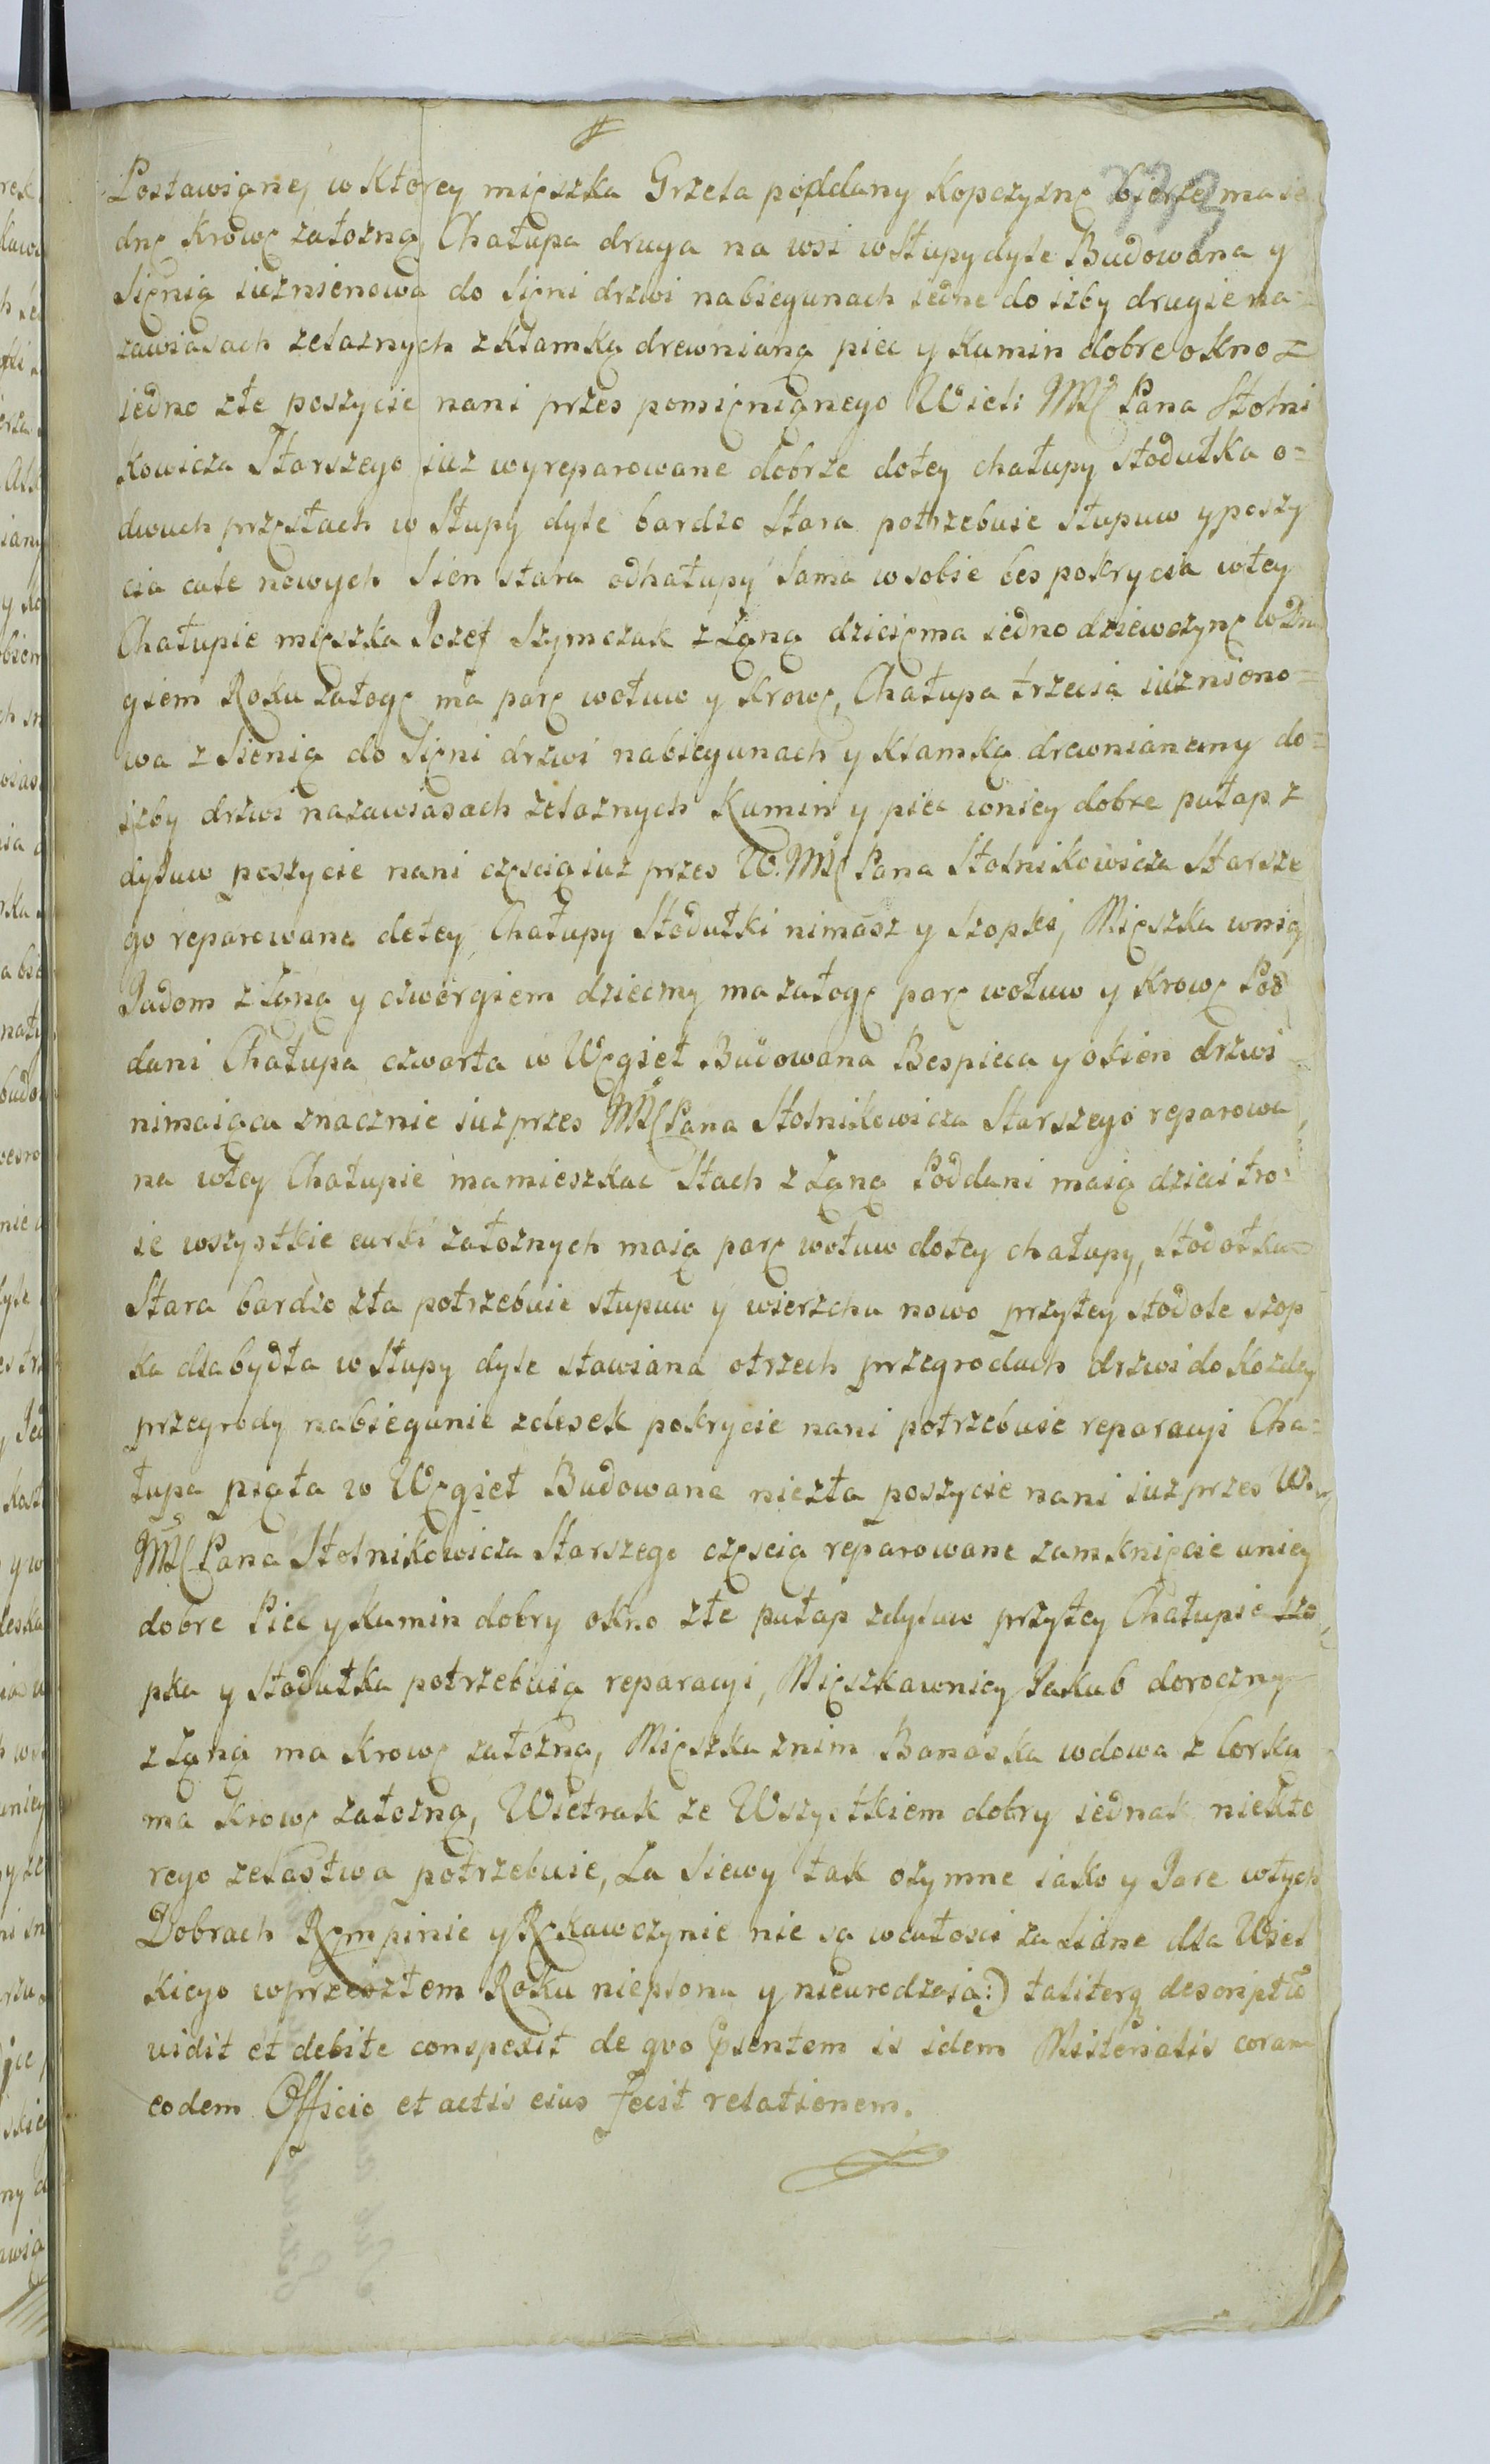 733
Postawianej w ktorey mięszka Grzela poddany Kopczyznę bierze ma ie
dnę krowę załozną, Chałupa druga na wsi w słupy dyle Budowana y
Sięnią iuznienowa do Sięni drzwi na biegunach iedne do izby drugie na=
zawiasach zelaznych z klamką drewnianą piec y kumin dobre okno=
iedno złe poszycie nani przes pomięnianego Wiel: Mści Pana Stolni
kowicza Starszego iuz wyreparowane dobrze dotey chałupy stodułka o=
dwuch przęsłach w słupy dyle bardzo stara potrzebuie słupuw y poszy
cia całe nowych Sien stara odhałupy sama w sobie bes pokrycia wtey
Chałupie męszka Jozef Szymczak z Zoną dziecię ma iedno dziewczynę w Dru
giem Roku załogę ma parę wołuw y krowę, Chałupa trzecia iuznieno=
wa z Sienią do Sięni drzwi nabiegunach y klamką drewnianemy do=
izby drzwi nazawiasach zelaznych Kumin y piec wniey dobre pułap z
dyluw poszycie nani częscią iuz przes W. Mści Pana Stolnikowicza Starsze
go reparowane dotey Chałupy Stodułki nimasz y Szopki, Mięszka wnią
Jadom z Zoną y czworgiem dziecmy ma załogę parę wołuw y krowę Pod
dani Chałupa czwarta w Węgieł Budowana Bespieca y okien drzwi
nimaiąca znacznie iuz przes Mści Pana Stolnikowicza Starszego reparowa
na wtey Chałupie mamieszkac Stach z Zoną Poddani maią dzieci tro=
ie wszystkie curki załoznych maią parę wołuw dotey chałupy, Stodołka=
Stara bardzo zła potrzebuie słupuw y wierzchu nowo przytey stodole szop
ka dla bydła w słupy dyle stawiana otrzech przegrodach drzwi do kozdey
przegrody nabiegunie zdesek pokrycie nani potrzebuie reparacyi Cha=
łupa piąta w Węgieł Budowana niezła poszycie nani iuz przes W.
Mści Pana Stolnikowicza Starszego częscią reparowane zamknięcie uniey
dobre Piec y kumin dobry okno złe pułap zdyluw przytey Chałupie szo
pka y Stodułka potrzebuią reparacyi, Mięszkawniey Jakub doroczny
z Zoną ma krowę załozną, Mięszka znim Banaska wdowa z Corką
ma krowę załozną, Wietrak ze Wszystkiem dobry iednak niekto
rego zelastwa potrzebuie, Za Siewy tak ozymne iako y Jare wtych
Dobrach Rempinie y Rękawczynie nie są wcałosci zasiane dla Wiel
kiego wprzeszłem Roku nieplonu y nieurodzaia:) taliterq descriptū
uidit et debite conspexit de quo p̄sentem is idem Misterialis coram
eodem Officio et actis eius fecit relationem.